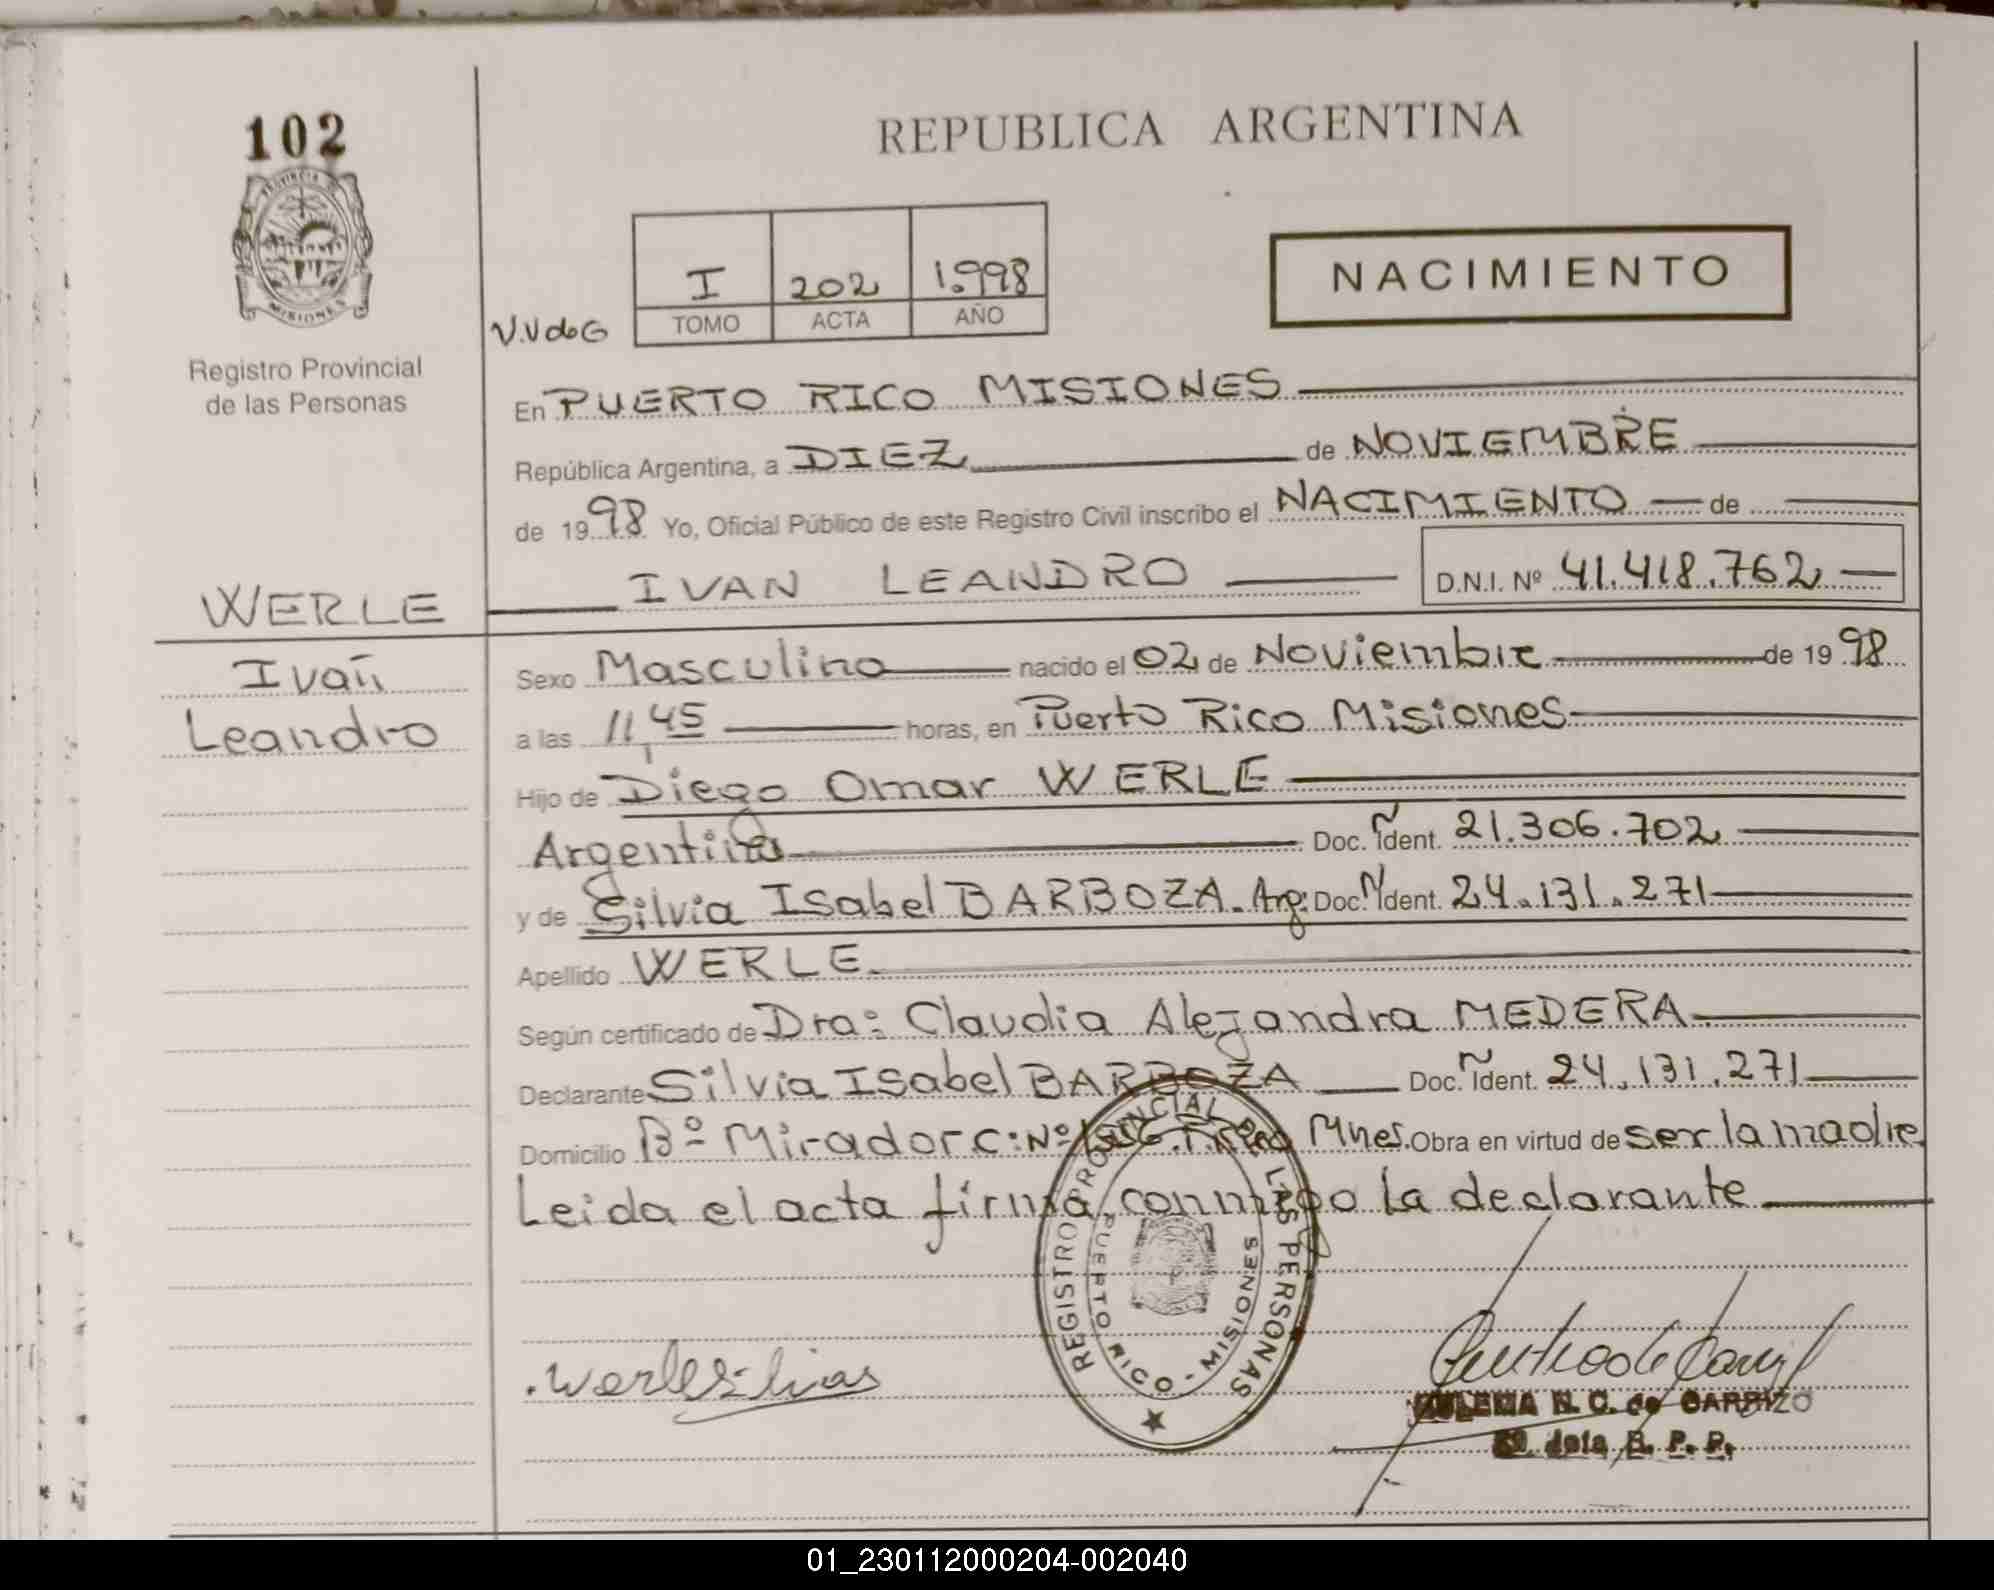 102
PROVINCIA DE
MISIONES
Registro Provincial
de las Personas
REPUBLICA ARGENTINA
I 202 1.998
TOMO ACTA AÑO
V.V de G
NACIMIENTO
En PUERTO RICO MISIONES
República Argentina, a DIEZ de NOVIEMBRE
de 1998 Yo, Oficial Público de este Registro Civil inscribo el NACIMIENTO de
IVAN LEANDRO D.N.I. Nº 41.418.762
WERLE
Iván
Leandro
Sexo Masculino nacido el 02 de Noviembre de 1998
a las 11,45 horas, en Puerto Rico Misiones
Hijo de Diego Omar WERLE
Argentino Doc. Ident. 21.306.702
y de Silvia Isabel BARBOZA. Arg: Doc. Ident. 24.131.271
Apellido WERLE
Según certificado de Dra: Claudia Alejandra MEDERA
Declarante Silvia Isabel BARBOZA Doc. Ident. 24.131.271
Domicilio Bº Mirador C: Nº Mnes. Obra en virtud de ser la madre
Leida el acta firma conmigo la declarante
REGISTRO PROVINCIAL DE LAS PERSONAS
PUERTO RICO - MISIONES
N. C. de CARRIZO
R. P. P.
01_230112000204-002040